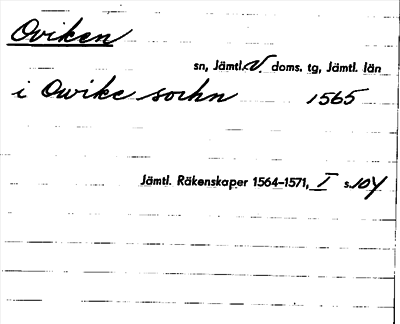 Oviken
sn, Jämtl. V. doms. tg, Jämtl. län
i Owike sochn 1565
Jämtl. Räkenskaper 1564–1571, I s. 104